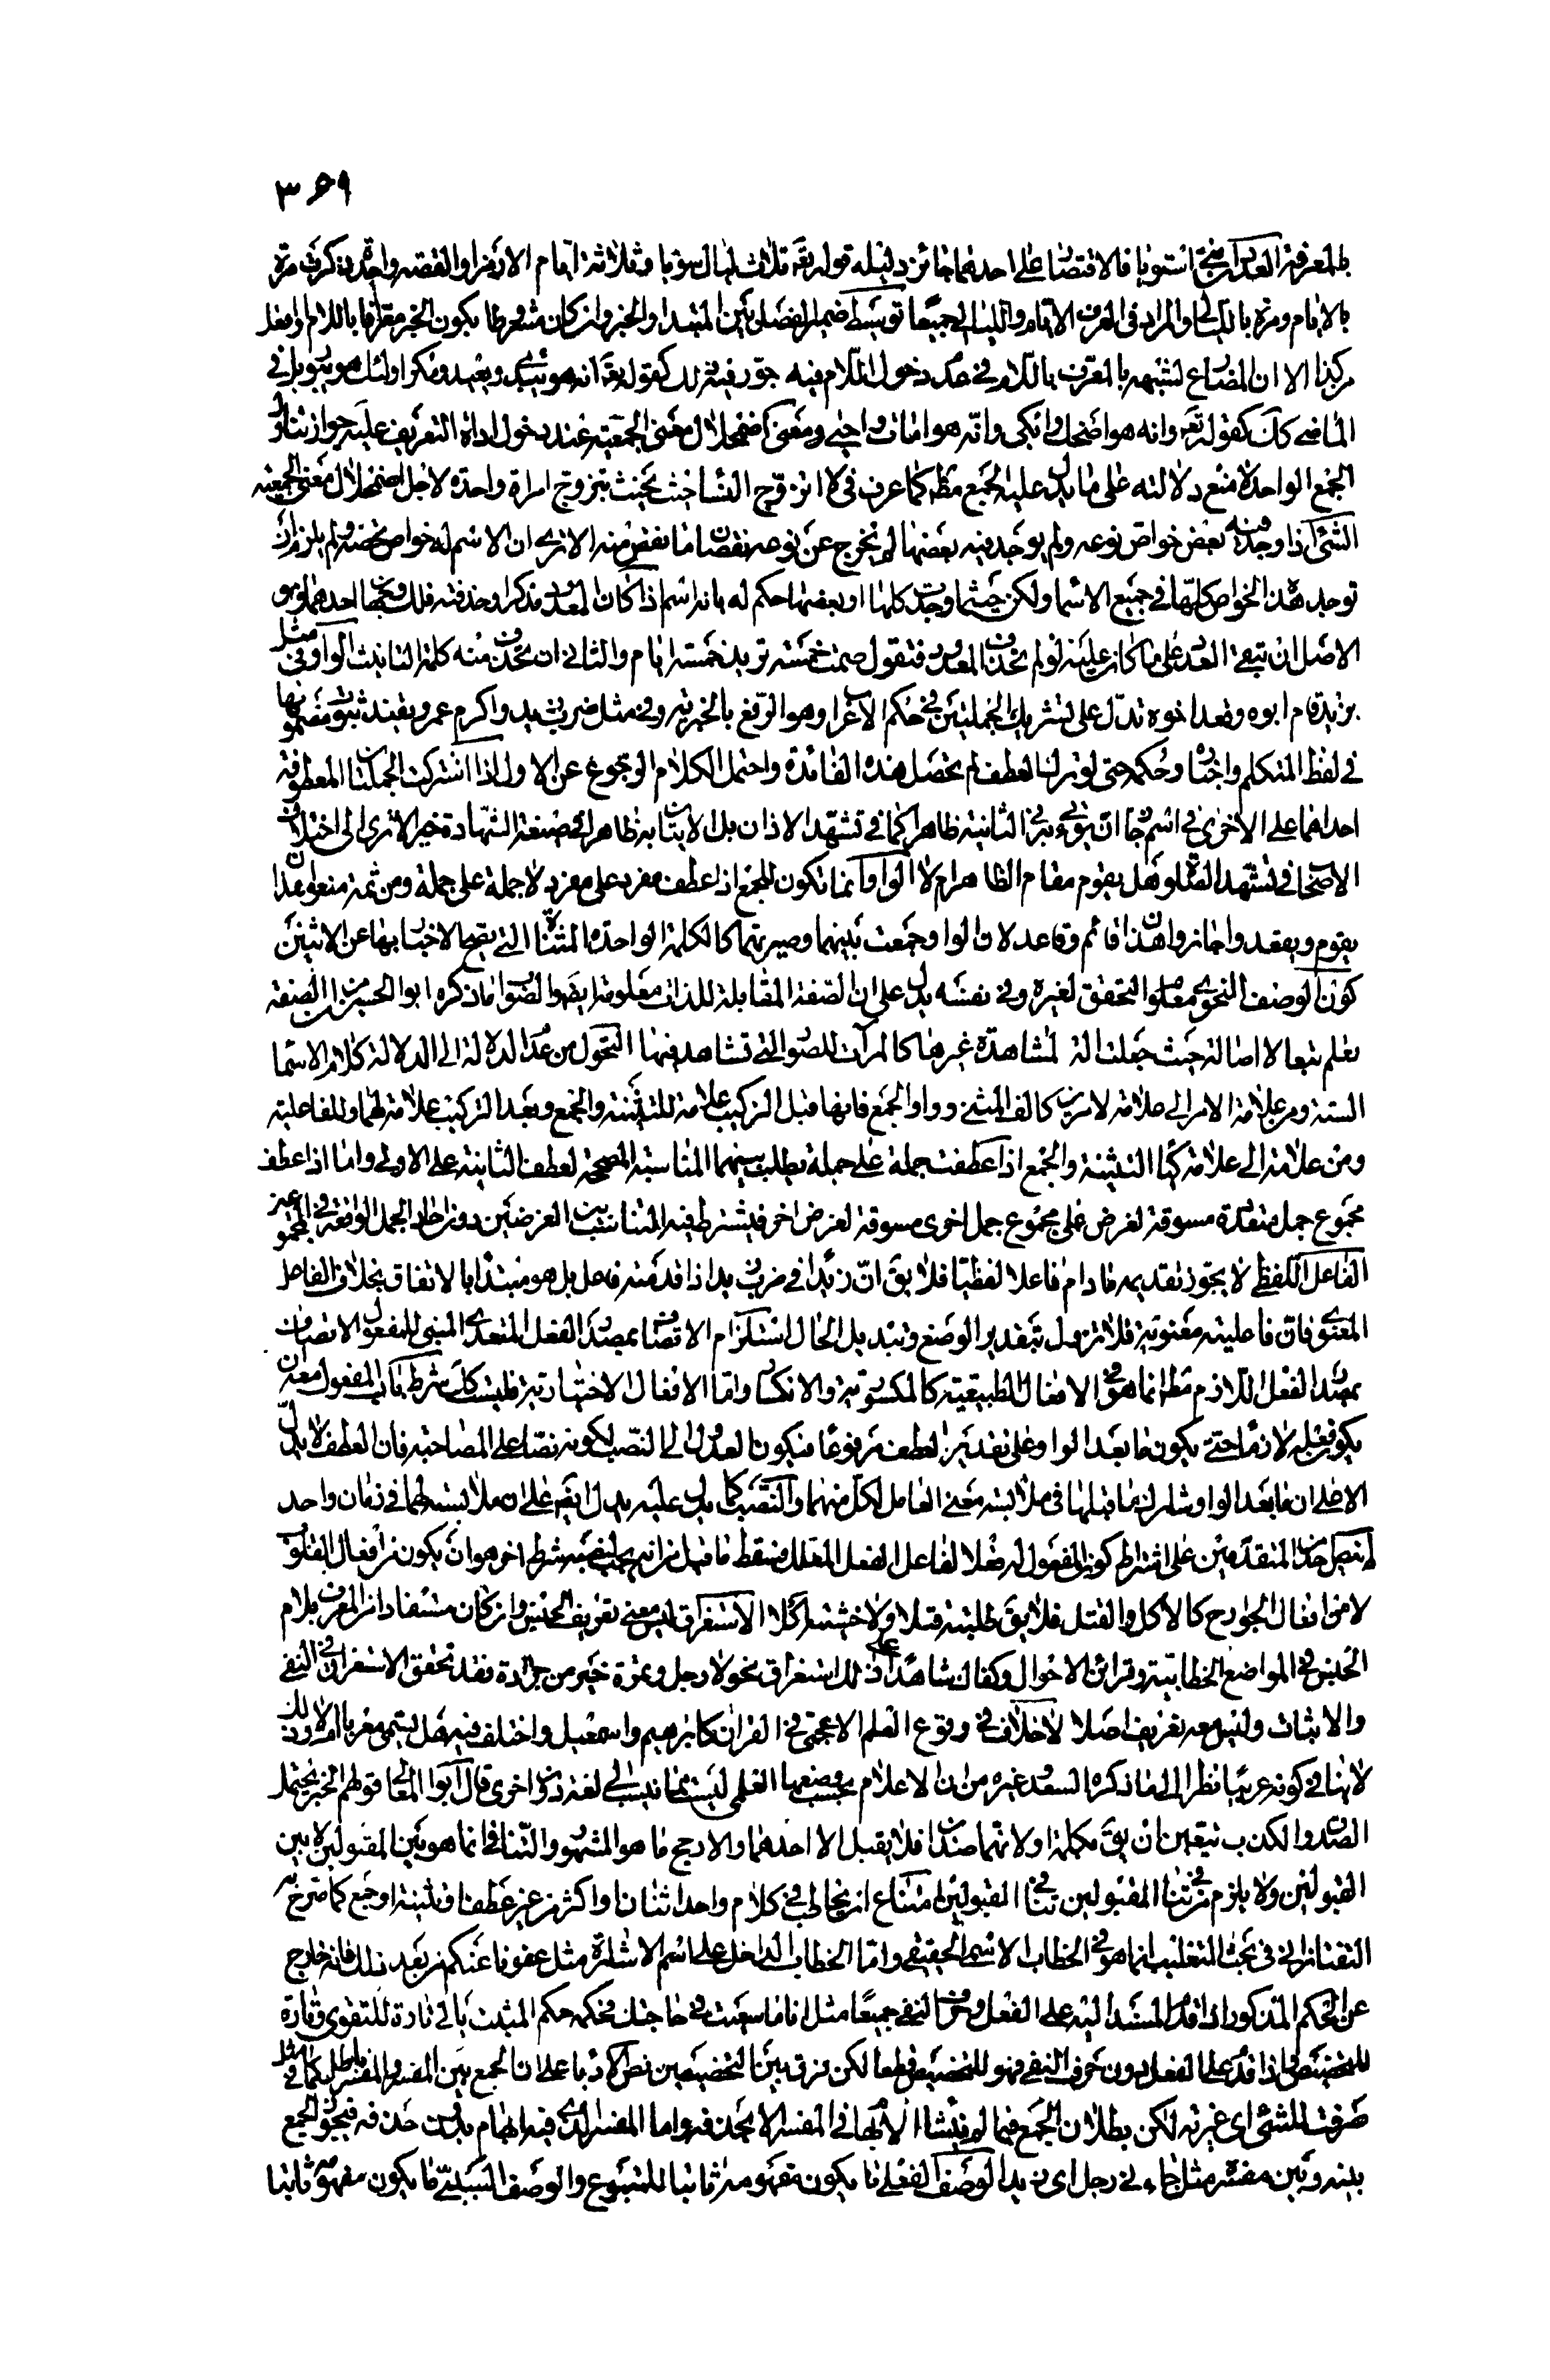 ٣٦٩
بالمعرفة العددان متى استويا فالاقتصار على احدهما جائز دليله قوله تعالى ثلاث ليال سويا وثلاثة ايام الا رمزا والقصة واحدة ذكرت مرة
بالايام ومرة بالليالي والمراد في العرف الايام والليالي جميعا توسط ضمير الفصل بين المبتدا والخبر وان كان مشروطا بكون الخبر معرفا باللام او افعل
من كذا الا ان المضارع لشبهه بالمعرف باللام في عدم دخول اللام فيه جوز فيه ذلك كقوله تعالى انه هو يبدئ ويعيد ومكر اولئك هو يبور بل في
الماضي كذلك كقوله تعالى وانه هو اضحك وابكى وانه هو امات واحيى ومعنى اضمحلال معنى الجمعية عند دخول اداة التعريف عليه جواز تناول
الجمع الواحد لا منع دلالته على ما يدل عليه الجمع مطلقا كما عرف في لا اتزوج النساء حيث يحنث بتزوج امراة واحدة لاجل اضمحلال معنى الجمعية
الشئ اذا وجد فيه بعض خواص نوعه ولم يوجد فيه بعضها لم يخرج عن نوعه بنقصان ما نقص منه الا ترى ان الاسم له خواص تخصه ولم يلزم ان
توجد هذه الخواص كلها في جميع الاسماء ولكن حيثما وجدت كلها او بعضها حكم له بانه اسم اذا كان المعدود مذكرا وحذفته فلك وجهان احدهما وهو
الاصل ان تبقي العدد على ما كان عليه لو لم تحذف المعدود فتقول صمت خمسة تريد خمسة ايام والثاني ان تحذف منه كلة التانيث الواو في مثل
زيد قام ابوه وقعد اخوه تدل على تشريك الجملتين في حكم الاعراب وهو الرفع بالخبرية وفي مثل ضرب زيد واكرم عمرو يفيد ثبوت مضمونها
في لفظ المتكلم واخباره وحكمه حتى لو ترك العطف لم يحصل هذه الفائدة واحتمل الكلام الرجوع عن الاول اذا اشتركت الجملتان المعطوفة
احداهما على الاخرى في اسم جاز ان يؤتى به في الثانية ظاهرا كما في تشهد الاذان بل الاتيان به ظاهرا في صيغة الشهادة خير الا ترى الى اختلاف
الاصحاب في تشهد الصلوة هل يقوم مقام الظاهر ام لا الواو انما تكون للجمع اذا عطف مفرد على مفرد لا جملة على جملة ومن ثمة منعوا هذان
يقوم ويقعد واجازوا هذان قائم وقاعد لان الواو جمعت بينهما وصيرتهما كالكلمة الواحدة المثناة التي يصح الاخبار بها عن الاثنين
كون الوصف النحوي معلوم التحقق لغيره وفي نفسه يدل على ان الصفة المقابلة للذات معلومة ايضا والصواب ما ذكره ابو الحسين من ان الصفة
تعلم تبعا لا اصالة حيث جعلت آلة لمشاهدة غيرها كالمرآت للصور التي تشاهد فيها التحول من عدم الدلالة الى الدلالة كلام الاسماء
الستة ومن علامة الامر الى علامة لامرين كالف المثنى وواو الجمع فانها قبل التركيب علامة للتثنية والجمع وبعد التركيب علامة لهما وللفاعلية
ومن علامة الى علامة كياء التثنية والجمع اذا عطفت جملة على جملة يطلب بينهما المناسبة المصححة لعطف الثانية على الاولى واما اذا عطف
مجموع جمل متعددة مسوقة لغرض على مجموع جمل اخرى مسوقة لغرض اخر فيشترط فيه التناسب بين الغرضين دون احاد الجمل الواقعة في المجموعين
الفاعل اللفظي لا يجوز تقديمه ما دام فاعلا لفظيا فلا يقال ان زيدا في ضرب زيد اذا قدمته فاعل بل هو مبتدأ بالاتفاق بخلاف الفاعل
المعنوي فان فاعليته معنوية فلا تزول بتغيير الوضع وتبديل الحال استلزام الاتصاف بمصدر الفعل المتعدي المبنى للمفعول الاتصاف
بمصدر الفعل اللازم مطلقا انما هو في الافعال الطبيعية كالمكسورية والانكسار واما الافعال الاختيارية فليست كذلك شرط باب المفعول معه ان
يكون فعله لازما حتى يكون ما بعد الواو على تقدير العطف مرفوعا فيكون العدول الى النصب لكونه نصا على المصاحبة فان العطف لا يدل
الا على ان ما بعد الواو مشارك لما قبلها في ملابسة معنى العامل لكل منهما والنصب كما يدل عليه يدل ايضا على ان ملابسته لهما في زمان واحد
لم ينص احد من المتقدمين على اشتراط كون المفعول له فعلا لفاعل الفعل المعلل فيسقط ما قيل من انه يجب لنصبه شرط اخر وهو ان يكون من افعال القلوب
لا من افعال الجوارح كالاكل والقتل فلا يقال طلبته قتلا ولا خشيته اكلا الاستغراق ليس معنى تعريف الجنس وان كان مستفادا من المعرف بلام
الجنس في المواضع الخطابية وقرائن الاحوال وكفاك شاهدا على ذلك استغراق نحو لا رجل وتمرة خير من جرادة فقد تحقق الاستغراق في النفي
والاثبات وليس معه تعريف اصلا لا خلاف في وقوع العلم الاعجمي في القرآن كابرهيم واسمعيل واختلف فيه هل يسمى معربا ام لا وذلك
لا ينافي كونه عربيا نظرا الى ما ذكره السعد وغيره من ان الاعلام بحسب وضعها العلمي ليست مما ينسب الى لغة دون اخرى قال ابو المعالي قولهم الخبر يحتمل
الصدق والكذب يتعين ان يقال مكملة او لانهما ضدان فلا يقبل الا احدهما والارجح ما هو المشهور والتنافي انما هو بين المقبولين لا بين
القبولين ولا يلزم من تنافي المقبولين تنافي القبولين امتناع ان يخاطب في كلام واحد اثنان او اكثر من غير عطف او تثنية او جمع كما صرح به
التفتازاني في بحث التغليب انما هو في الخطاب الاسمي الحقيقي واما الخطاب الداخل على اسم الاشارة مثل عفونا عنكم من بعد ذلك فانه خارج
عن الحكم المذكور اذا قدم المسند اليه على الفعل وحرف النفي جميعا مثل انا ما سعيت في حاجتك فحكمه حكم المثبت ياتي تارة للتقوى وتارة
للتخصيص واذا قدم على الفعل دون حرف النفي فهو للتخصيص قطعا لكن فرق بين التخصيصين نص الادباء على ان الجمع بين المفسر والمفسر باطل كما في مثل
ضرفت المشئى اى غيرته لكن بطلان الجمع فيما لو فيشا الابهام في المفسر الا بحذفه واما المفسر الذي فيه ابهام بدون حذفه فيجوز الجمع
بينه وبين مفسره مثل جاءني رجل اى زيد الوصف الفعلي ما يكون مفهومه ثابتا للمتبوع والوصف السببي ما يكون مفهومه ثابتا